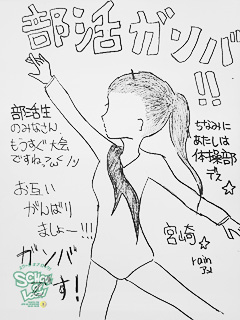 部活ガンバ!!
部活生
のみなさん、
もうすぐ大会
ですね?
ちなみに
あたしは
体操部
デス☆
お互い
がんばり
ましょー!!!
ガンバ
です!
宮崎☆
rain